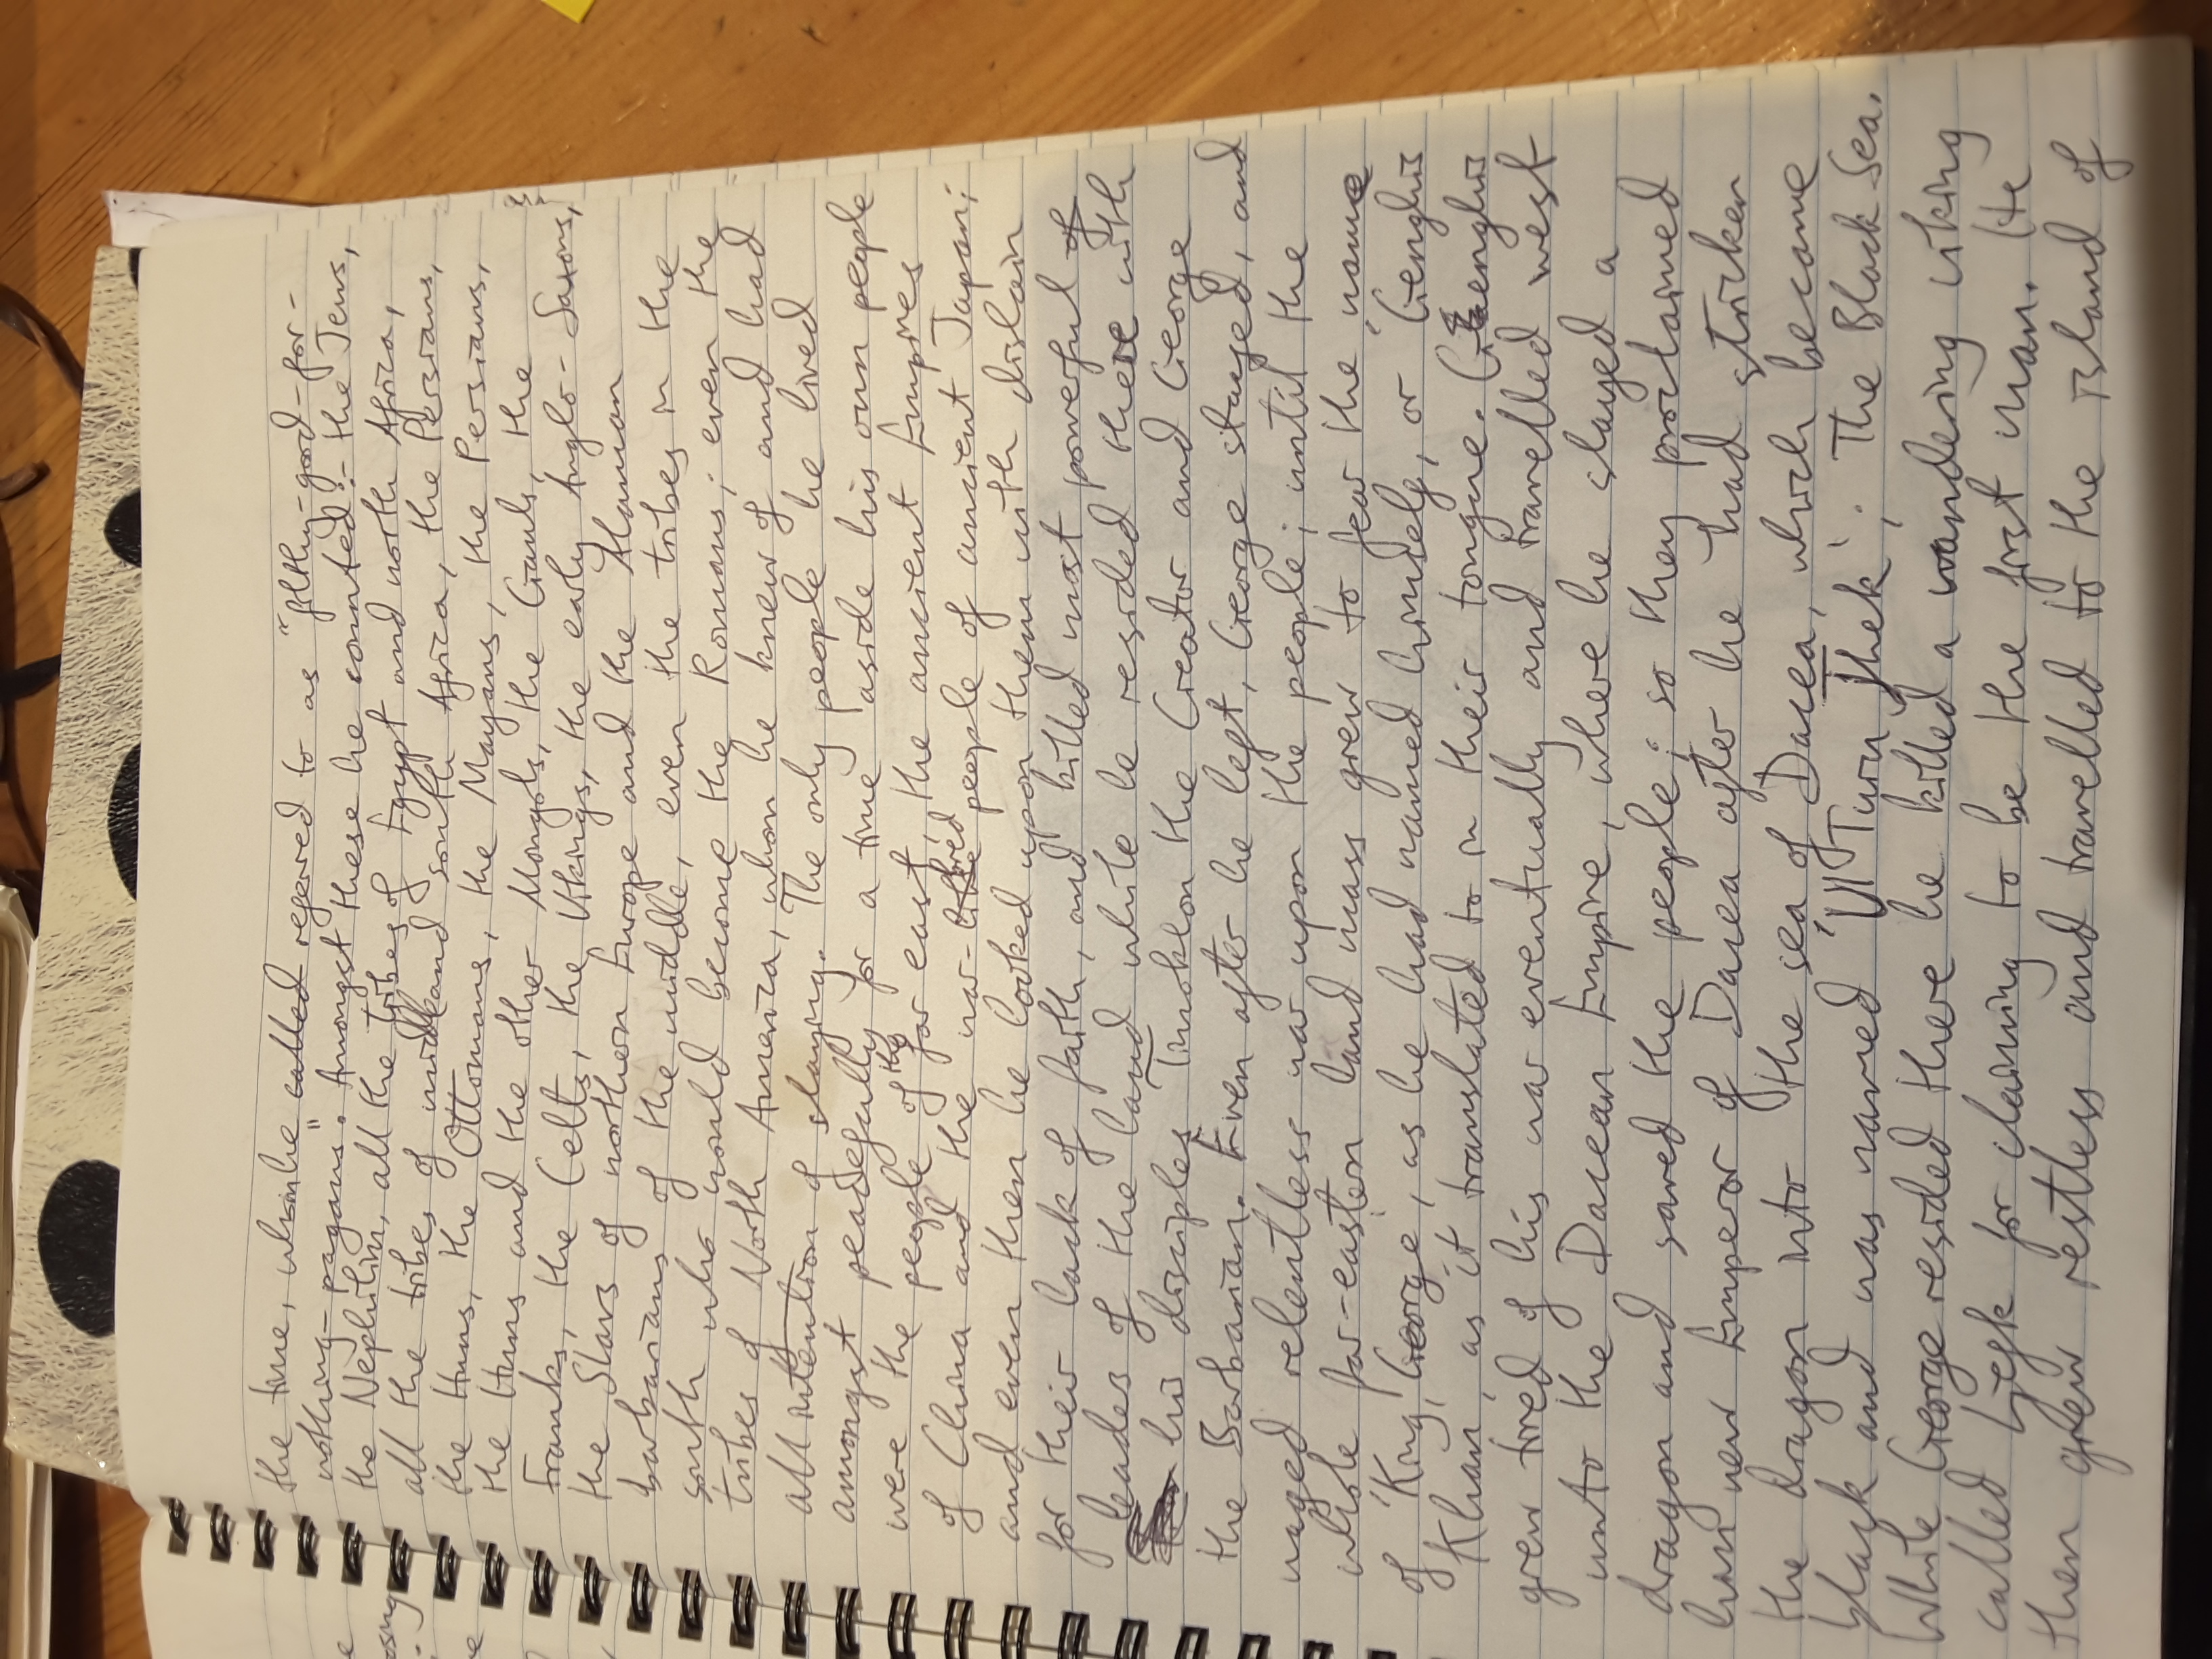 the time, whom he called referred to as "filthy-good-for-
nothing-pagans". Amongst these he counted:- the Jews,
the Nephilim, all the tribes of Egypt and north Africa,
all the tribes of mid and south Africa, the Persians,
the Huns, the Ottomans, the Mayans, the Persians,
the Huns and the other Mongols, the Gauls, the
Franks, the Celts, the Vikings, the early Anglo-Saxons,
the Slavs of northern Europe and the Alaman
barbarians of the middle, even the tribes in the
south who would become the Romans; even the
tribes of North America, whom he knew of and had
all intention of slaying. The only people he lived
amongst peacefully for a time aside his own people
were the people of the far east, the ancient Empires
of China and the war-like bred people of ancient Japan;
and even then he looked upon them with disdain
for their lack of faith, and killed most powerful of
leaders of the land while he resided there with
his disciples Timoklon the Creator and George
the Barbarian. Even after he left, George stayed, and
waged relentless war upon the people; until the
whole far-eastern land mass grew to fear the name
of 'King George', as he had named himself, or 'Genghis
Khan, as it translated to in their tongue. Genghis
grew tired of his war eventually and travelled west
unto the Dacean Empire, where he slayed a
dragon and saved the people; so they proclaimed
him new Emperor of Dacea after he had stricken
the dragon into the sea of Dacea, which became
black and was named 'Vl Turn Jhek'; The Black Sea.
While George resided there he killed a wandering viking
called Ljefk for claiming to be the first man. He
then grew restless and travelled to the island of